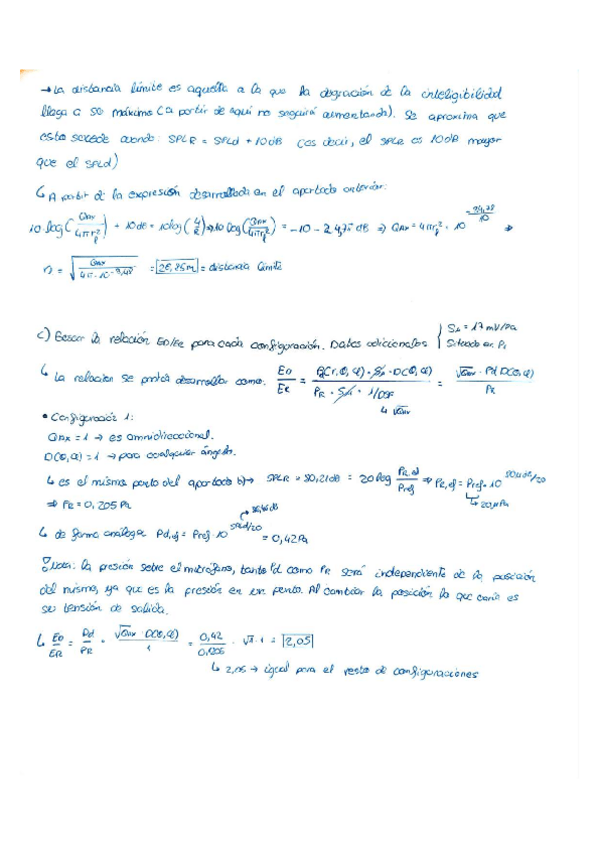 → La distancia límite es aquella a la que la degradación de la inteligibilidad
llega a su máximo (a partir de aquí no seguirá aumentando). Se aproxima que
esto sucede cuando: SPLR = SPLd + 10dB (es decir, el SPLR es 10dB mayor
que el SPLd)
↳ A partir de la expresión desarrollada en el apartado anterior:
10·log(QAx/4πrl²) + 10dB = 10log(4/R) → 10log(QAx/4πrl²) = -10 - 24,75 dB ⇒ QAx = 4πrl² · 10 ⇒
= √(QAx/4π·10) = 26,85m = distancia límite
c) Buscar la relación ED/ER para cada configuración. Datos adicionales { = 17mV/Pa
Situado en P1
↳ La relación se podrá desarrollar como: ED/ER = · D(θ,φ)/PR · 1/√QAx = √QAx · Pd D(θ,φ)/PR
• Configuración 1:
QAx = 1 → es omnidireccional.
D(θ,φ) = 1 → para cualquier ángulo.
↳ es el mismo punto del apartado b) → SPLR = 80,21dB = 20log PR,ef/Pref ⇒ PR,ef = Pref · 10
⇒ PR = 0,205Pa
20μPa
↳ de forma análoga Pd,ef = Pref · 10^SPLd/20 = 0,42Pa
Nota: La presión sobre el micrófono, tanto Pd como PR será independiente de la posición
del mismo, ya que es la presión en un punto. Al cambiar la posición lo que varía es
su tensión de salida.
↳ ED/ER = Pd/PR · √QAx · D(θ,φ)/1 = 0,42/0,205 · √1 · 1 = 2,05
↳ 2,05 → igual para el resto de configuraciones